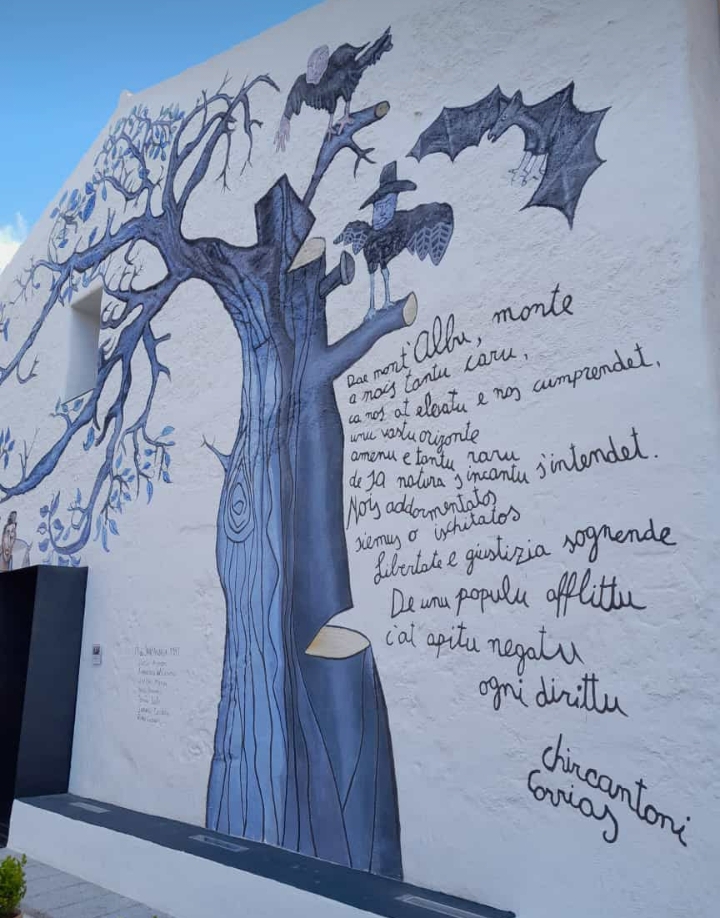 Dae mont'Albu, monte
a nois tantu caru,
ca nos at elevatu e nos cumprendet,
unu vastu orizonte
amenu e tantu raru
de sa natura s'incantu s'intendet.
Nois addormentatos
siemus o ischitatos
libertate e giustizia sognende
De unu populu afflittu
c'at apitu negatu
ogni dirittu
chircantoni
Corrias